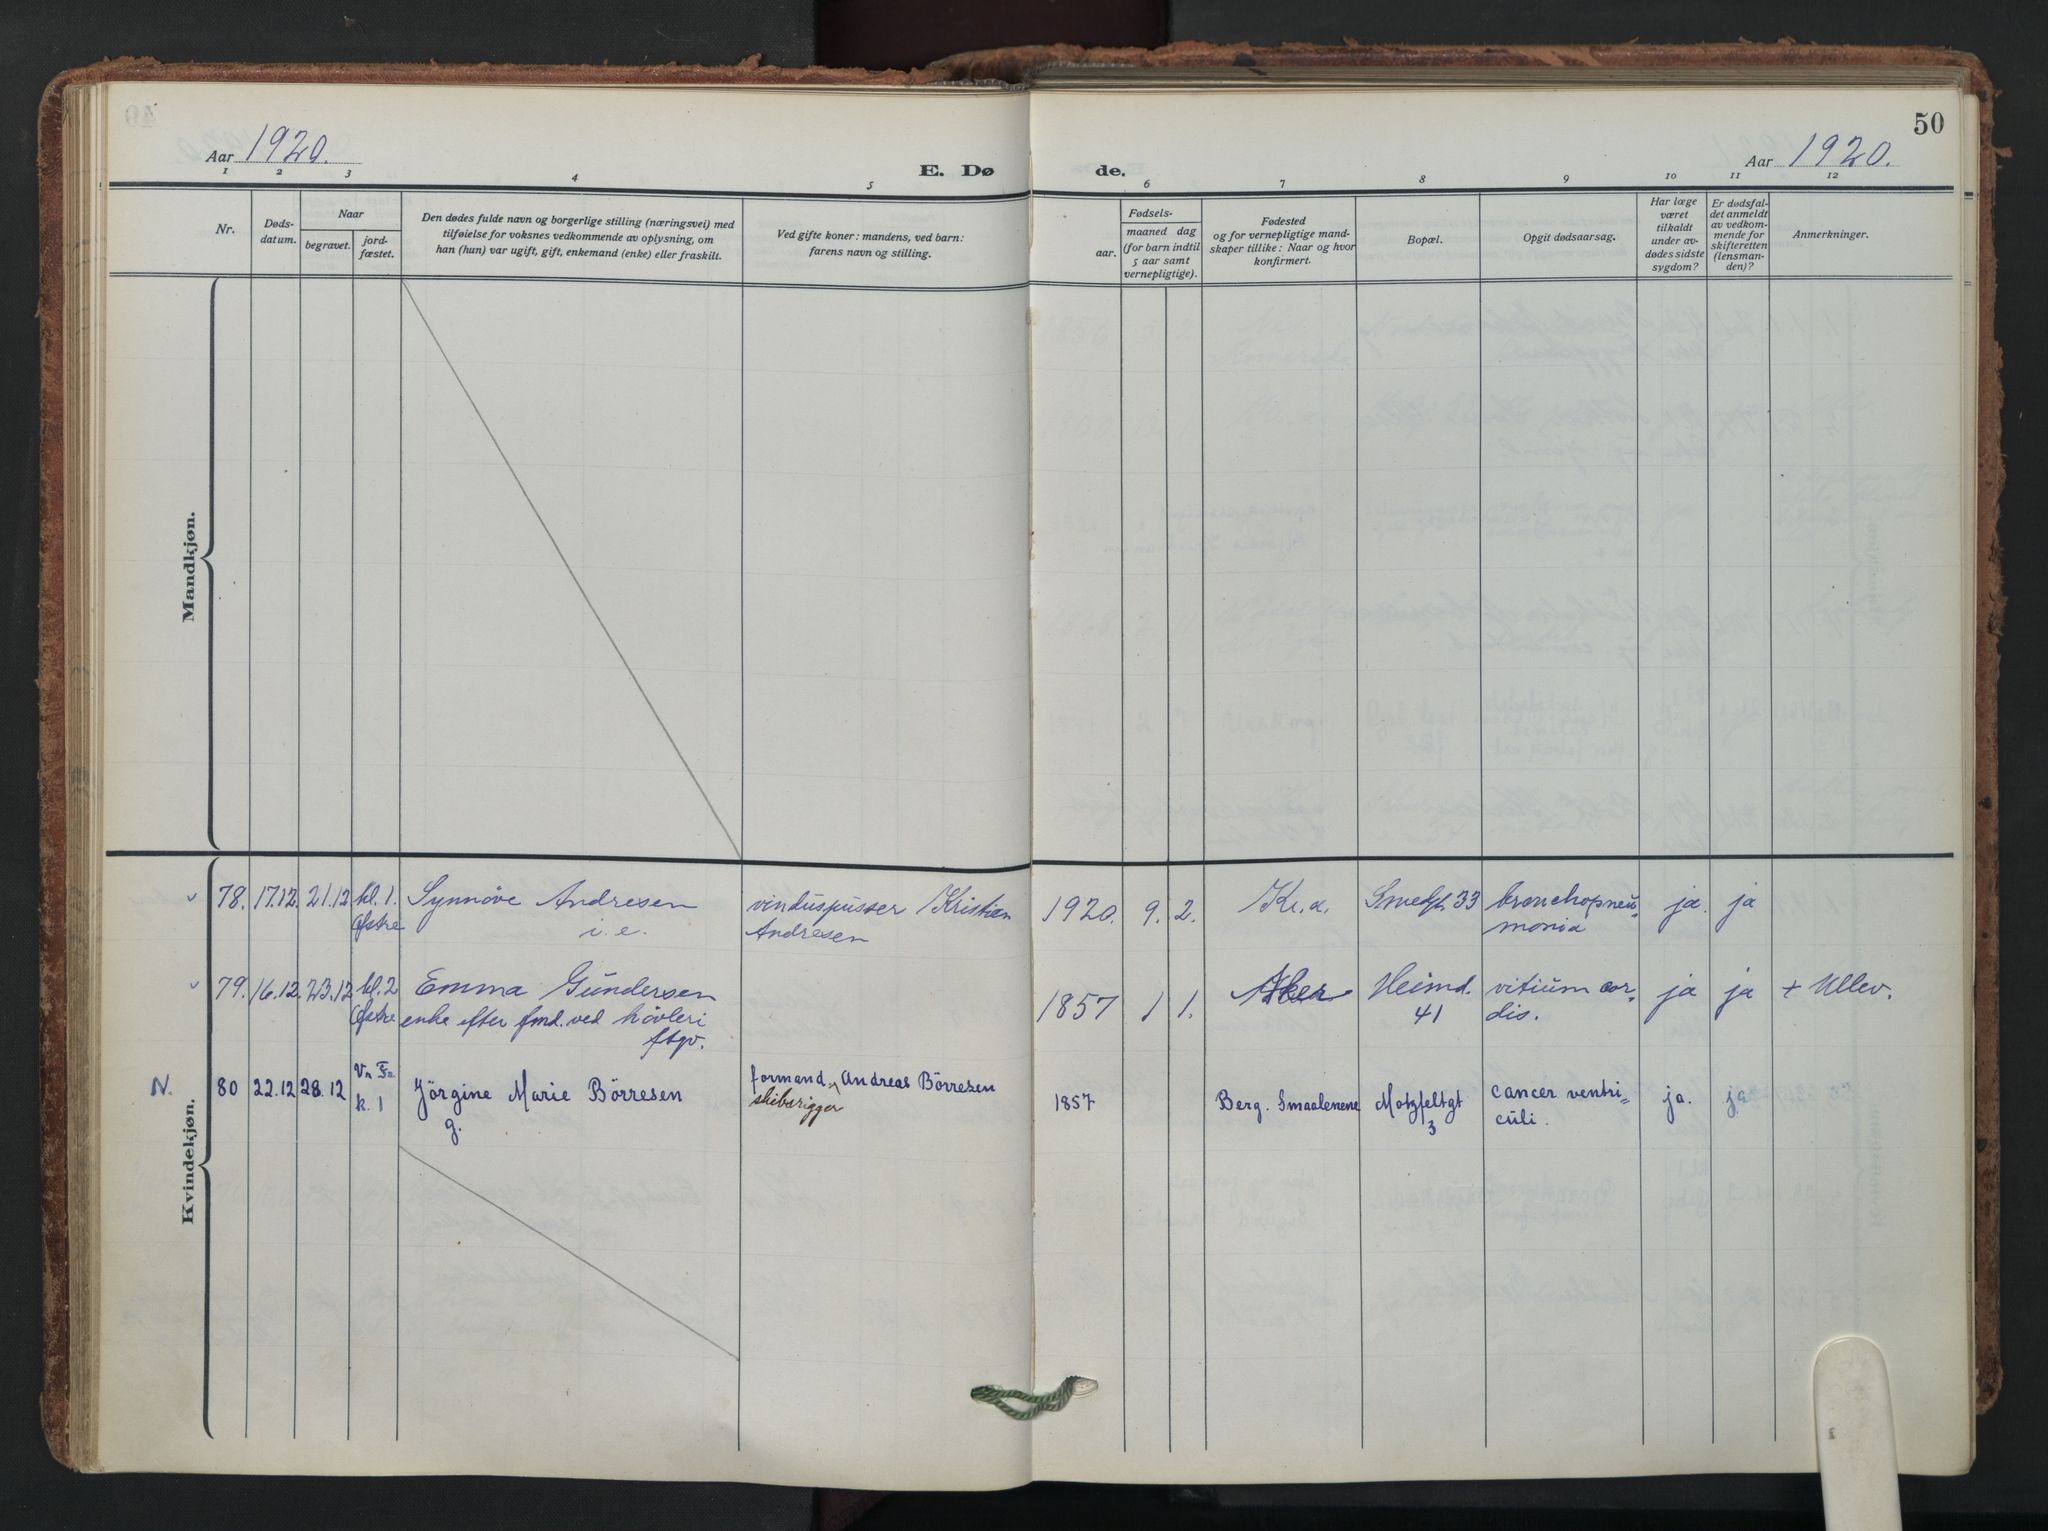 50
Aar 1920.
E. Dø de.
Aar 1920.
1 2 3 4 5 6 7 8 9 10 11 12
Nr.
Døds-
datum.
Naar
begravet.
jord-
fæstet.
Den dødes fulde navn og borgerlige stilling (næringsvei) med
tilføielse for voksnes vedkommende av oplysning, om
han (hun) var ugift, gift, enkemand (enke) eller fraskilt.
Ved gifte koner: mandens, ved barn:
farens navn og stilling.
Fødsels-
aar.
maaned dag
(for barn indtil
5 aar samt
vernepligtige).
Fødested
og for vernepligtige mand-
skaper tillike: Naar og hvor
konfirmert.
Bopæl.
Opgit dødsaarsag.
Har læge
været
tilkaldt
under av-
dødes sidste
sygdom?
Er dødsfal-
det anmeldt
av vedkom-
mende for
skifteretten
(lensman-
den)?
Anmerkninger.
Mandkjøn.
Kvindekjøn.
78. 17.12. 21.12 kl. 1. Synnöve Andresen vinduspusser Kristian 1920. 9. 2. Kr.a. Smedgt 33 bronchopneu- ja. ja
Østre i. e. Andresen monia
79. 16.12. 23.12 kl. 2 Emma Gundersen 1857 1 1. Aker Heimd. vitium cor- ja ja + Ullev.
Østre enke efter fmd. ved hövleri 41 dis.
ftgv.
N. 80 22.12 28.12 Jörgine Marie Börresen formand, Andreas Börresen 1857 Berg. Smaalenene Motzfeltgt cancer ventri- ja. ja
k. 1 g. skibsrigger 3 culi.